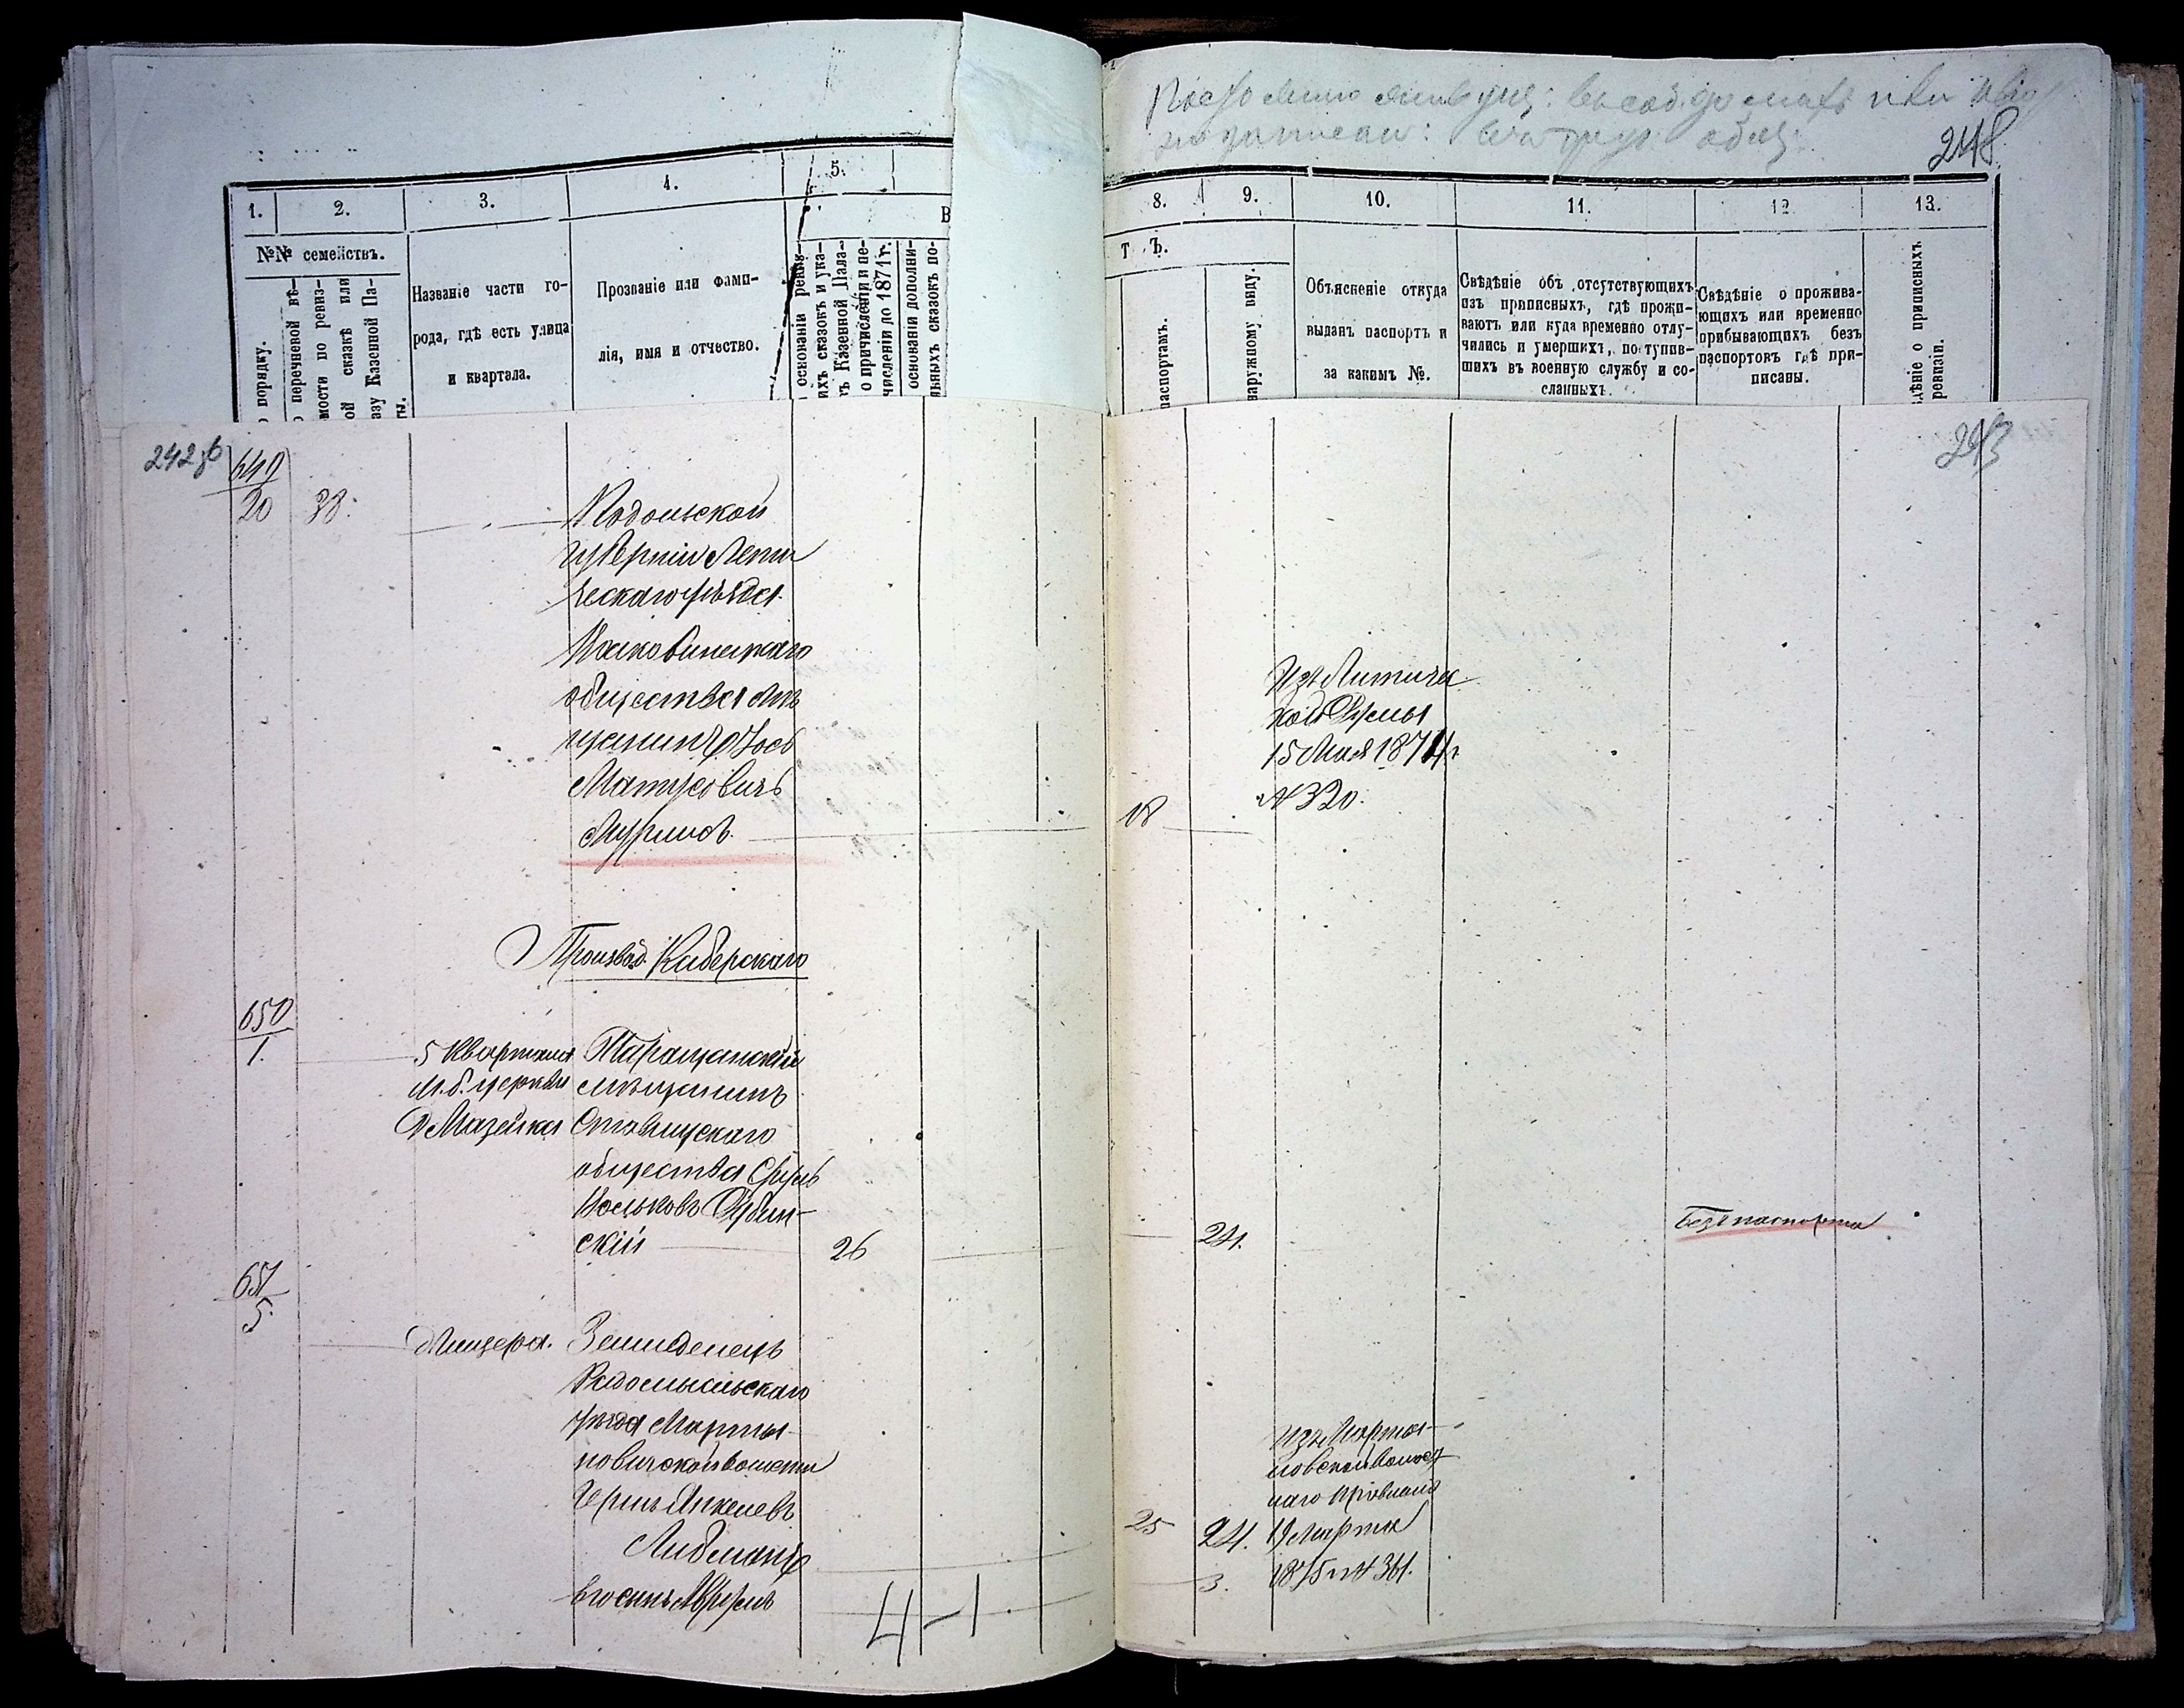 248
1.
2.
3.
4.
5.
8.
9.
10.
11.
12.
13.
№№ семействъ.
порядку.
перечневой вѣ-
мости по ревиз-
ой сказкѣ или
азу Казенной Па-
ты.
Названіе части го-
рода, гдѣ есть улица
и квартала.
Прозваніе или фами-
лія, имя и отчество.
В
основаніи ревиз-
ихъ сказокъ и ука-
въ Казенной Пала-
о причисленіи и пе-
численіи до 1871 г.
основаніи дополни-
льныхъ сказокъ по-
Т Ъ.
паспортамъ.
наружному виду.
Объясненіе откуда
выданъ паспортъ и
за какимъ №.
Свѣдѣніе объ отсутствующихъ
изъ приписныхъ, гдѣ прожи-
ваютъ или куда временно отлу-
чились и умершихъ, поступив-
шихъ въ военную службу и со-
сланныхъ.
Свѣдѣніе о прожива-
ющихъ или временно
прибывающихъ безъ
паспортовъ гдѣ при-
писаны.
дѣніе о приписныхъ
ревизіи.
242
649
20
38:
Подольской
губерніи Лети
ческаго уѣзда
общества мѣ
щанинъ Іось
Матусовичъ
18
15 Мая 1874 г
№ 320.
Производ. Каберскаго
650
1.
5 квартала
М. б. церкви
д Мазейка
Таращанскій
мѣщанинъ
Ставищскаго
общества Сруль
Вольковъ Дубин-
скій
26
24.
безъ паспорта
651
5.
Земледелецъ
Радомысльскаго
уѣзда Марты-
новичской волости
Гершъ Янкелевъ
Либманъ
его сынъ Аврумъ
25
24.
3.
Изъ Марты-
новской волост
наго правленія
19 Марта
1875 г № 361.
4-1